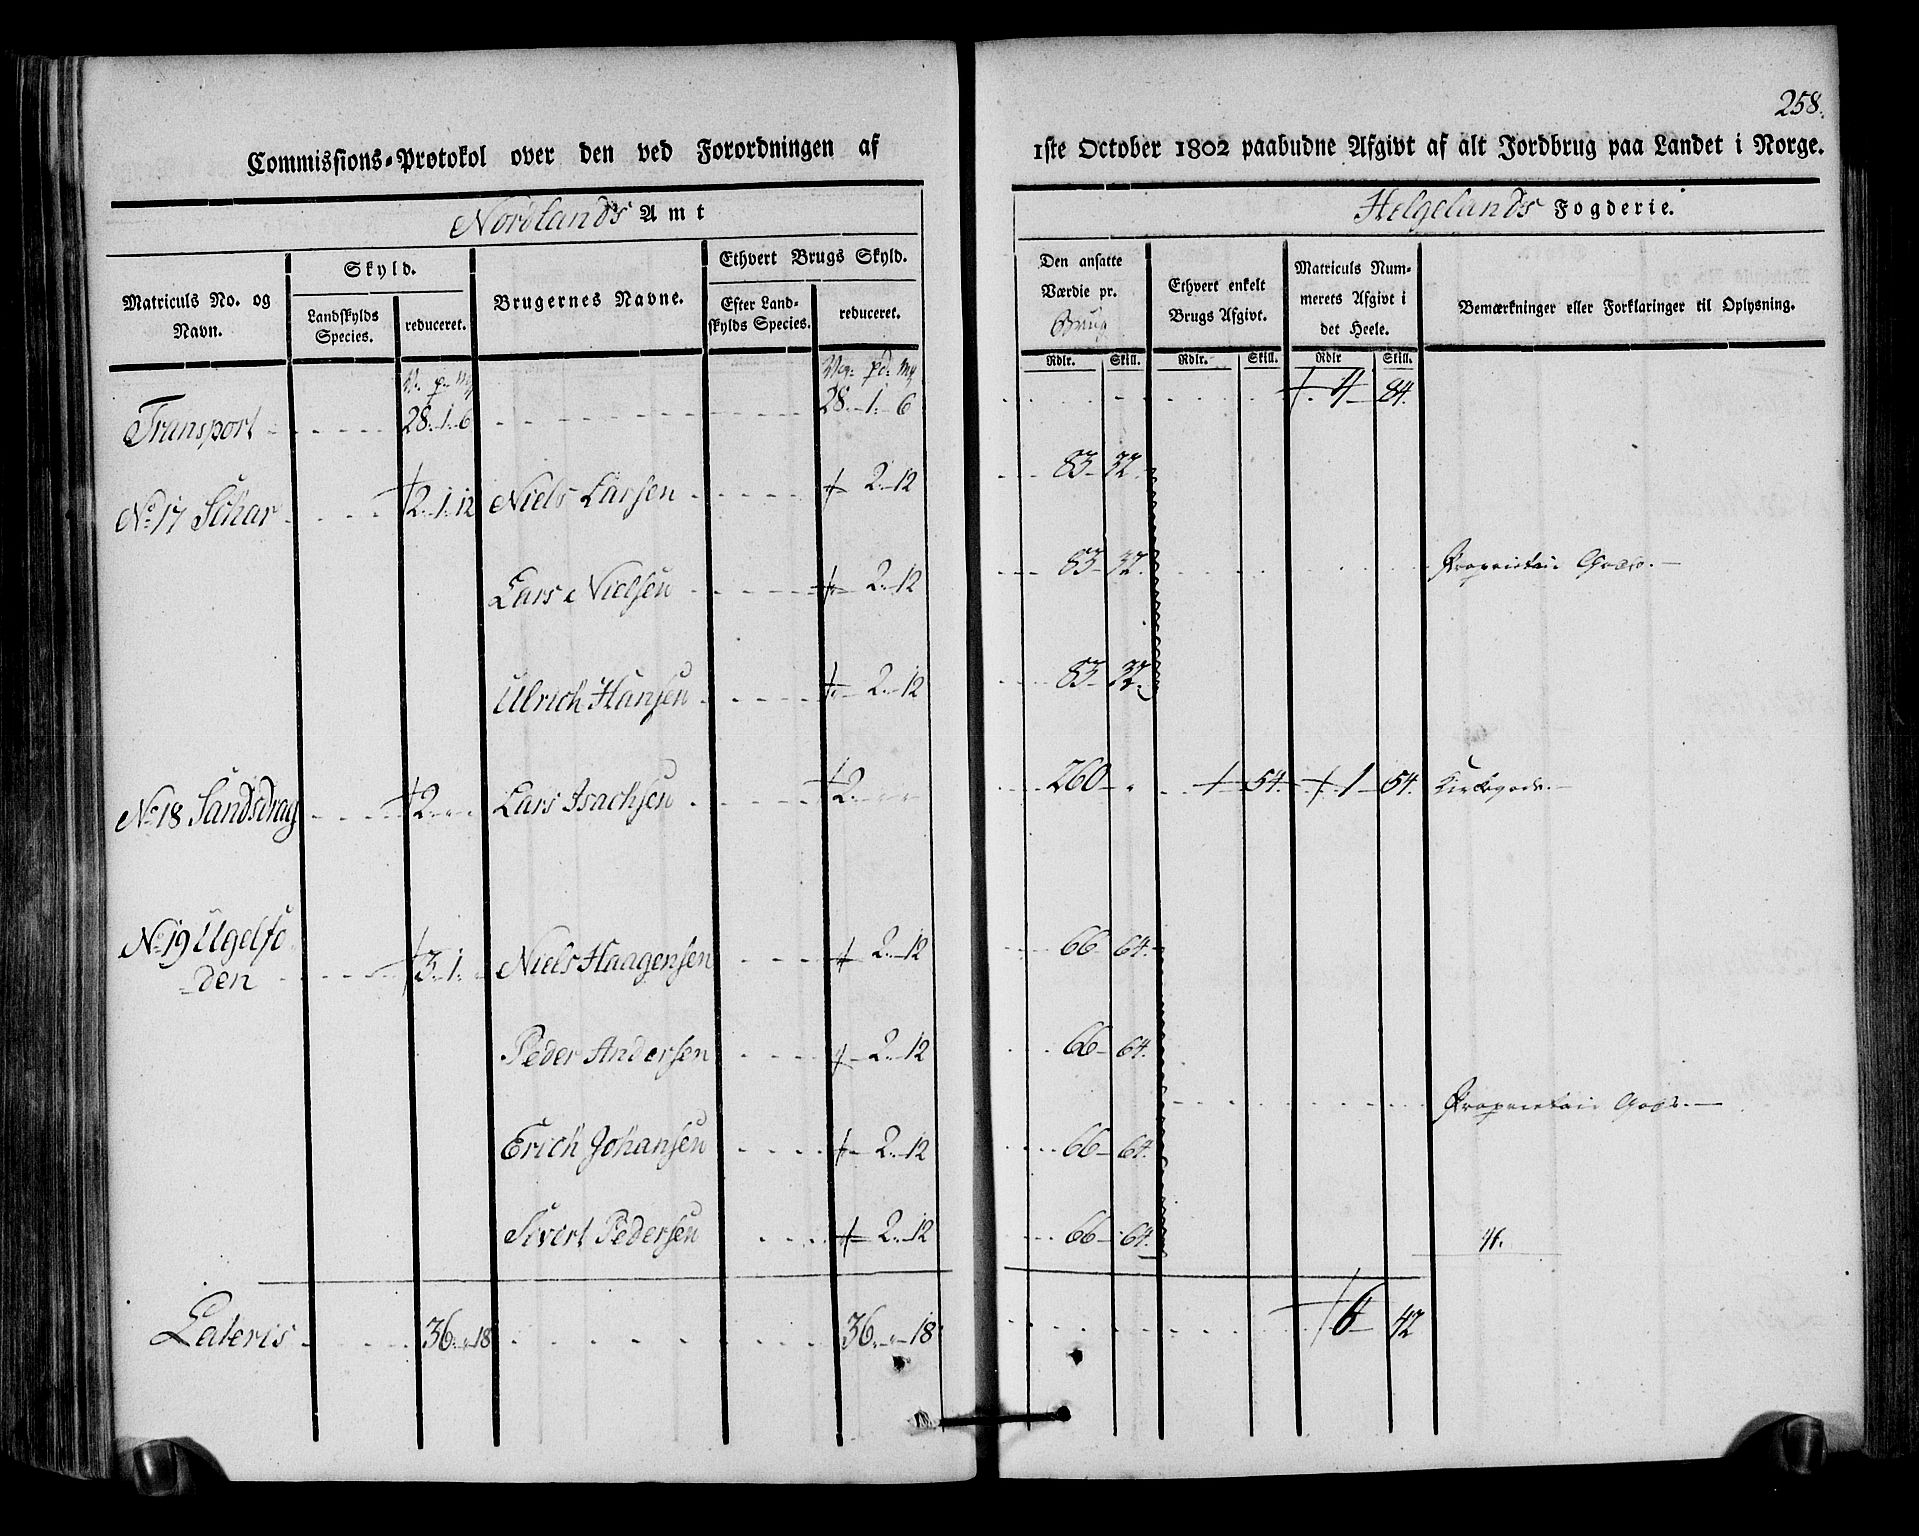 258.
Commissions-Protokol over den ved Forordningen af
1ste October 1802 paabudne Afgivt af alt Jordbrug paa Landet i Norge.
Nordlands Amt
Helgelands Fogderie.
Matriculs No. og Navn.
Skyld.
Landskylds Species.
reduceret.
Brugernes Navne.
Ethvert Brugs Skyld.
Efter Landskylds Species.
reduceret.
Den ansatte Værdie pr. Brug
Ethvert enkelt Brugs Afgivt.
Matriculs Nummerets Afgivt i det Heele.
Bemærkninger eller Forklaringer til Oplysning.
Rdlr. Skill. Rdlr. Skill. Rdlr Skill.
Transport 28. 1. 6 28. 1. 6 4 84.
No 17 Schar 2. 1. 12 Niels Larsen 2. 12 83 32
Lars Nielsen 2. 12 83 32. Proprietair Gods.
Ulrich Hansen 2. 12 83 32.
No 18 Sandsdrag 2. Lars Isachsen 2. 260 54. 1 54. Kirkegods.
No 19 Ugelsto
den 3. 1. Niels Haagensen 2. 12 66 64.
Peder Andersen 2. 12 66 64.
Proprietair Gods.
Erich Johansen 2. 12 66 64.
Sivert Pedersen 2. 12 66 64.
Lateris 36. 18 36. 18 6 42